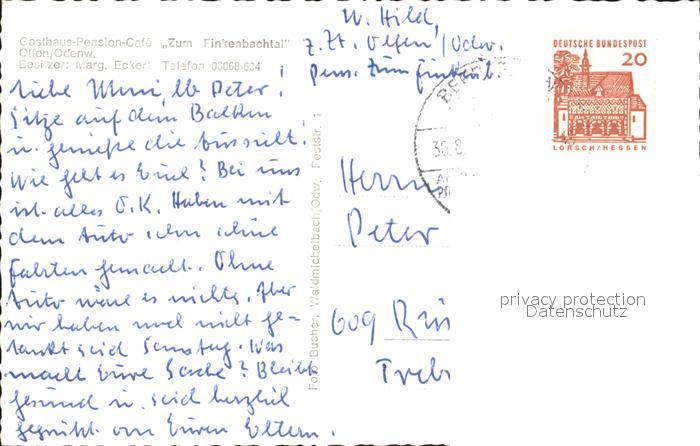 Gasthaus-Pension-Café „Zum Finkenbachtal"
Olfen/Odenw.
Besitzer: Marg. Eckert Telefon 06068-634
W. Hild,
z. Zt. Olfen/Odw.
Pens. Zum Finkenb.
Liebe Uhmi, lb Peter!
Sitze auf dem Balkon
u. genieße die Aussicht.
Wie geht es Euch? Bei uns
ist alles O.K. Haben mit
dem Auto schon schöne
Fahrten gemacht. Ohne
Auto wäre es nichts. Aber
wir haben noch nicht ge=
tankt seid Samstag. Was
macht Eure Sache? Bleibt
gesund u. seid herzlich
gegrüßt von Euren Eltern.
Foto Bucher, Waldmichelbach/Odw., Poststr. 1
DEUTSCHE BUNDESPOST
20
LORSCH/HESSEN
30.8
Herrn
Peter
609 Rüs
Treb
privacy protection
Datenschutz